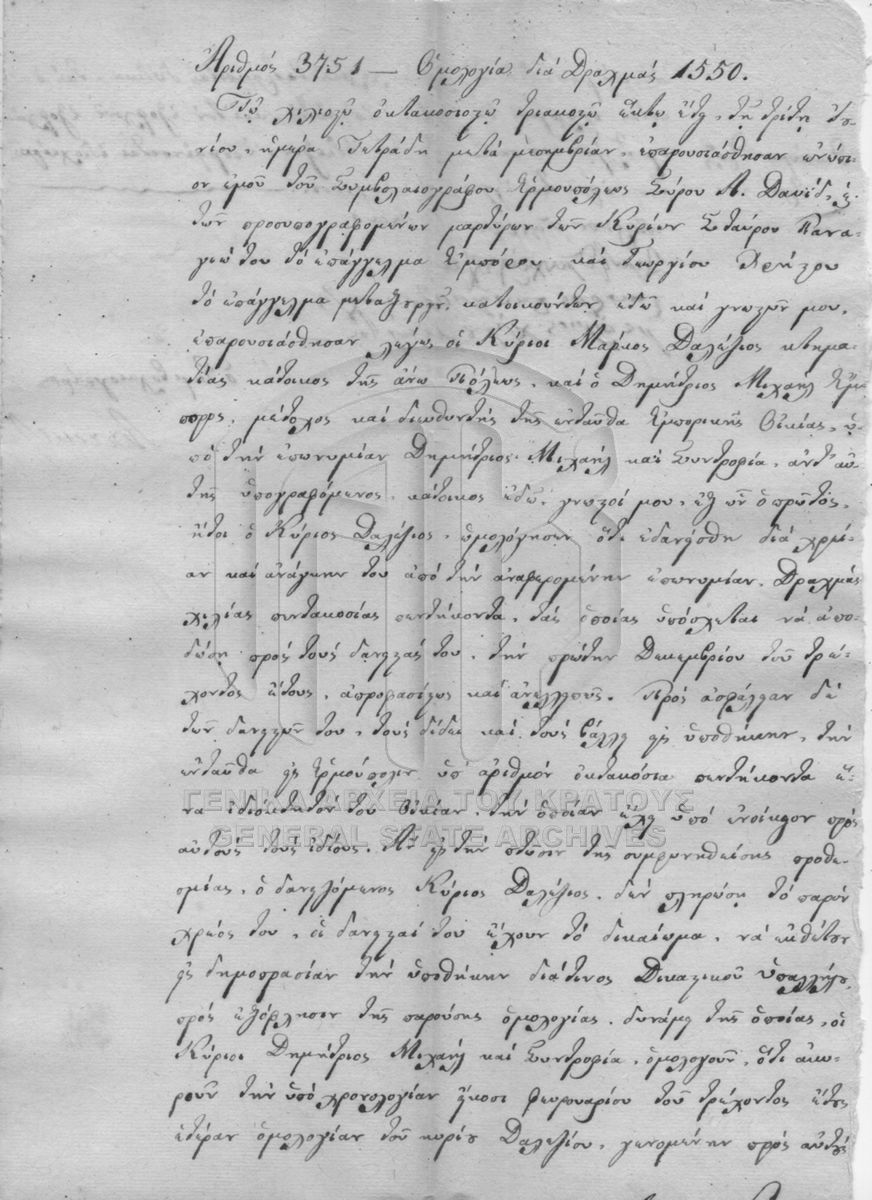 Ἀριθμός 3751 — Ὁμολογία διά Δραχμάς 1550.
Τῷ χιλιοστῷ ὀκτακοσιοστῷ τριακοστῷ ἕκτῳ ἔτει, τῇ τρίτῃ Ἰου-
νίου, ἡμέρᾳ Τετράδῃ μετά μεσημβρίαν, ἐπαρουσιάσθησαν ἐνώπι-
ον ἐμοῦ τοῦ Συμβολαιογράφου Ἑρμουπόλεως Σύρου Α. Δαυίδ,
τῶν προσυπογραφομένων μαρτύρων τῶν Κυρίων Σταύρου Πανα-
γιώτου τό ἐπάγγελμα ἐμπόρου καί Γεωργίου
τό ἐπάγγελμα κατοικούντων ἐδῶ καί γνωστῶν μου,
ἐπαρουσιάσθησαν λέγω οἱ Κύριοι Μάρκος Δαλέζιος κτημα-
τίας κάτοικος τῆς ἄνω Πόλεως, καί ὁ Δημήτριος Μιχαήλ ἔμ-
πορος, μέτοχος καί διευθυντής τῆς ἐνταῦθα Ἐμπορικῆς Οἰκίας, ὑ-
πό τήν ἐπωνυμίαν Δημήτριος Μιχαήλ καί Συντροφία, ἀντ' αὐ-
τῆς ὑπογραφόμενος, κάτοικος ἐδῶ, γνωστοί μου, ἐξ ὧν ὁ πρῶτος,
ἤτοι ὁ Κύριος Δαλέζιος, ὡμολόγησεν ὅτι ἐδανείσθη διά χρεί-
αν καί ἀνάγκην του ἀπό τήν ἀναφερομένην ἐπωνυμίαν, Δραχμάς
χιλίας πεντακοσίας πεντήκοντα, τάς ὁποίας ὑπόσχεται νά ἀπο-
δώσῃ πρός τούς δανειστάς του, τήν πρώτην Δεκεμβρίου τοῦ τρέ-
χοντος ἔτους, ἀπροφασίστως καί ἀνελλιπῶς. Πρός ἀσφάλειαν δέ
τῶν δανειστῶν του, τούς δίδει καί τούς βάλλει εἰς ὑποθήκην, τήν
ἐνταῦθα εἰς Ἑρμούπολιν ὑπ' ἀριθμόν ὀκτακόσια πεντήκοντα ἕ-
να ἰδιόκτητόν του Οἰκίαν, τήν ὁποίαν ἔχει ὑπό ἐνοίκιον πρός
αὐτούς τούς ἰδίους. Ἄν εἰς τήν πτῶσιν τῆς συμφωνηθείσης προθε-
σμίας, ὁ δανειζόμενος Κύριος Δαλέζιος, δέν πληρώσῃ τό παρόν
χρέος του, οἱ δανεισταί του ἔχουν τό δικαίωμα, νά ἐκθέτουν
εἰς δημοπρασίαν τήν ὑποθήκην διά τινος Δικαστικοῦ ὑπαλλήλου,
πρός ἐξόφλησιν τῆς παρούσης ὁμολογίας, δυνάμει τῆς ὁποίας, οἱ
Κύριοι Δημήτριος Μιχαήλ καί Συντροφία, ὁμολογοῦν, ὅτι ἀκυ-
ροῦν τήν ὑπό χρονολογίαν εἴκοσι φευρουαρίου τοῦ τρέχοντος ἔτους
ἑτέραν ὁμολογίαν τοῦ κυρίου Δαλεζίου, γενομένην πρός αὐτούς
ΓΕΝΙΚΑ ΑΡΧΕΙΑ ΤΟΥ ΚΡΑΤΟΥΣ
GENERAL STATE ARCHIVES